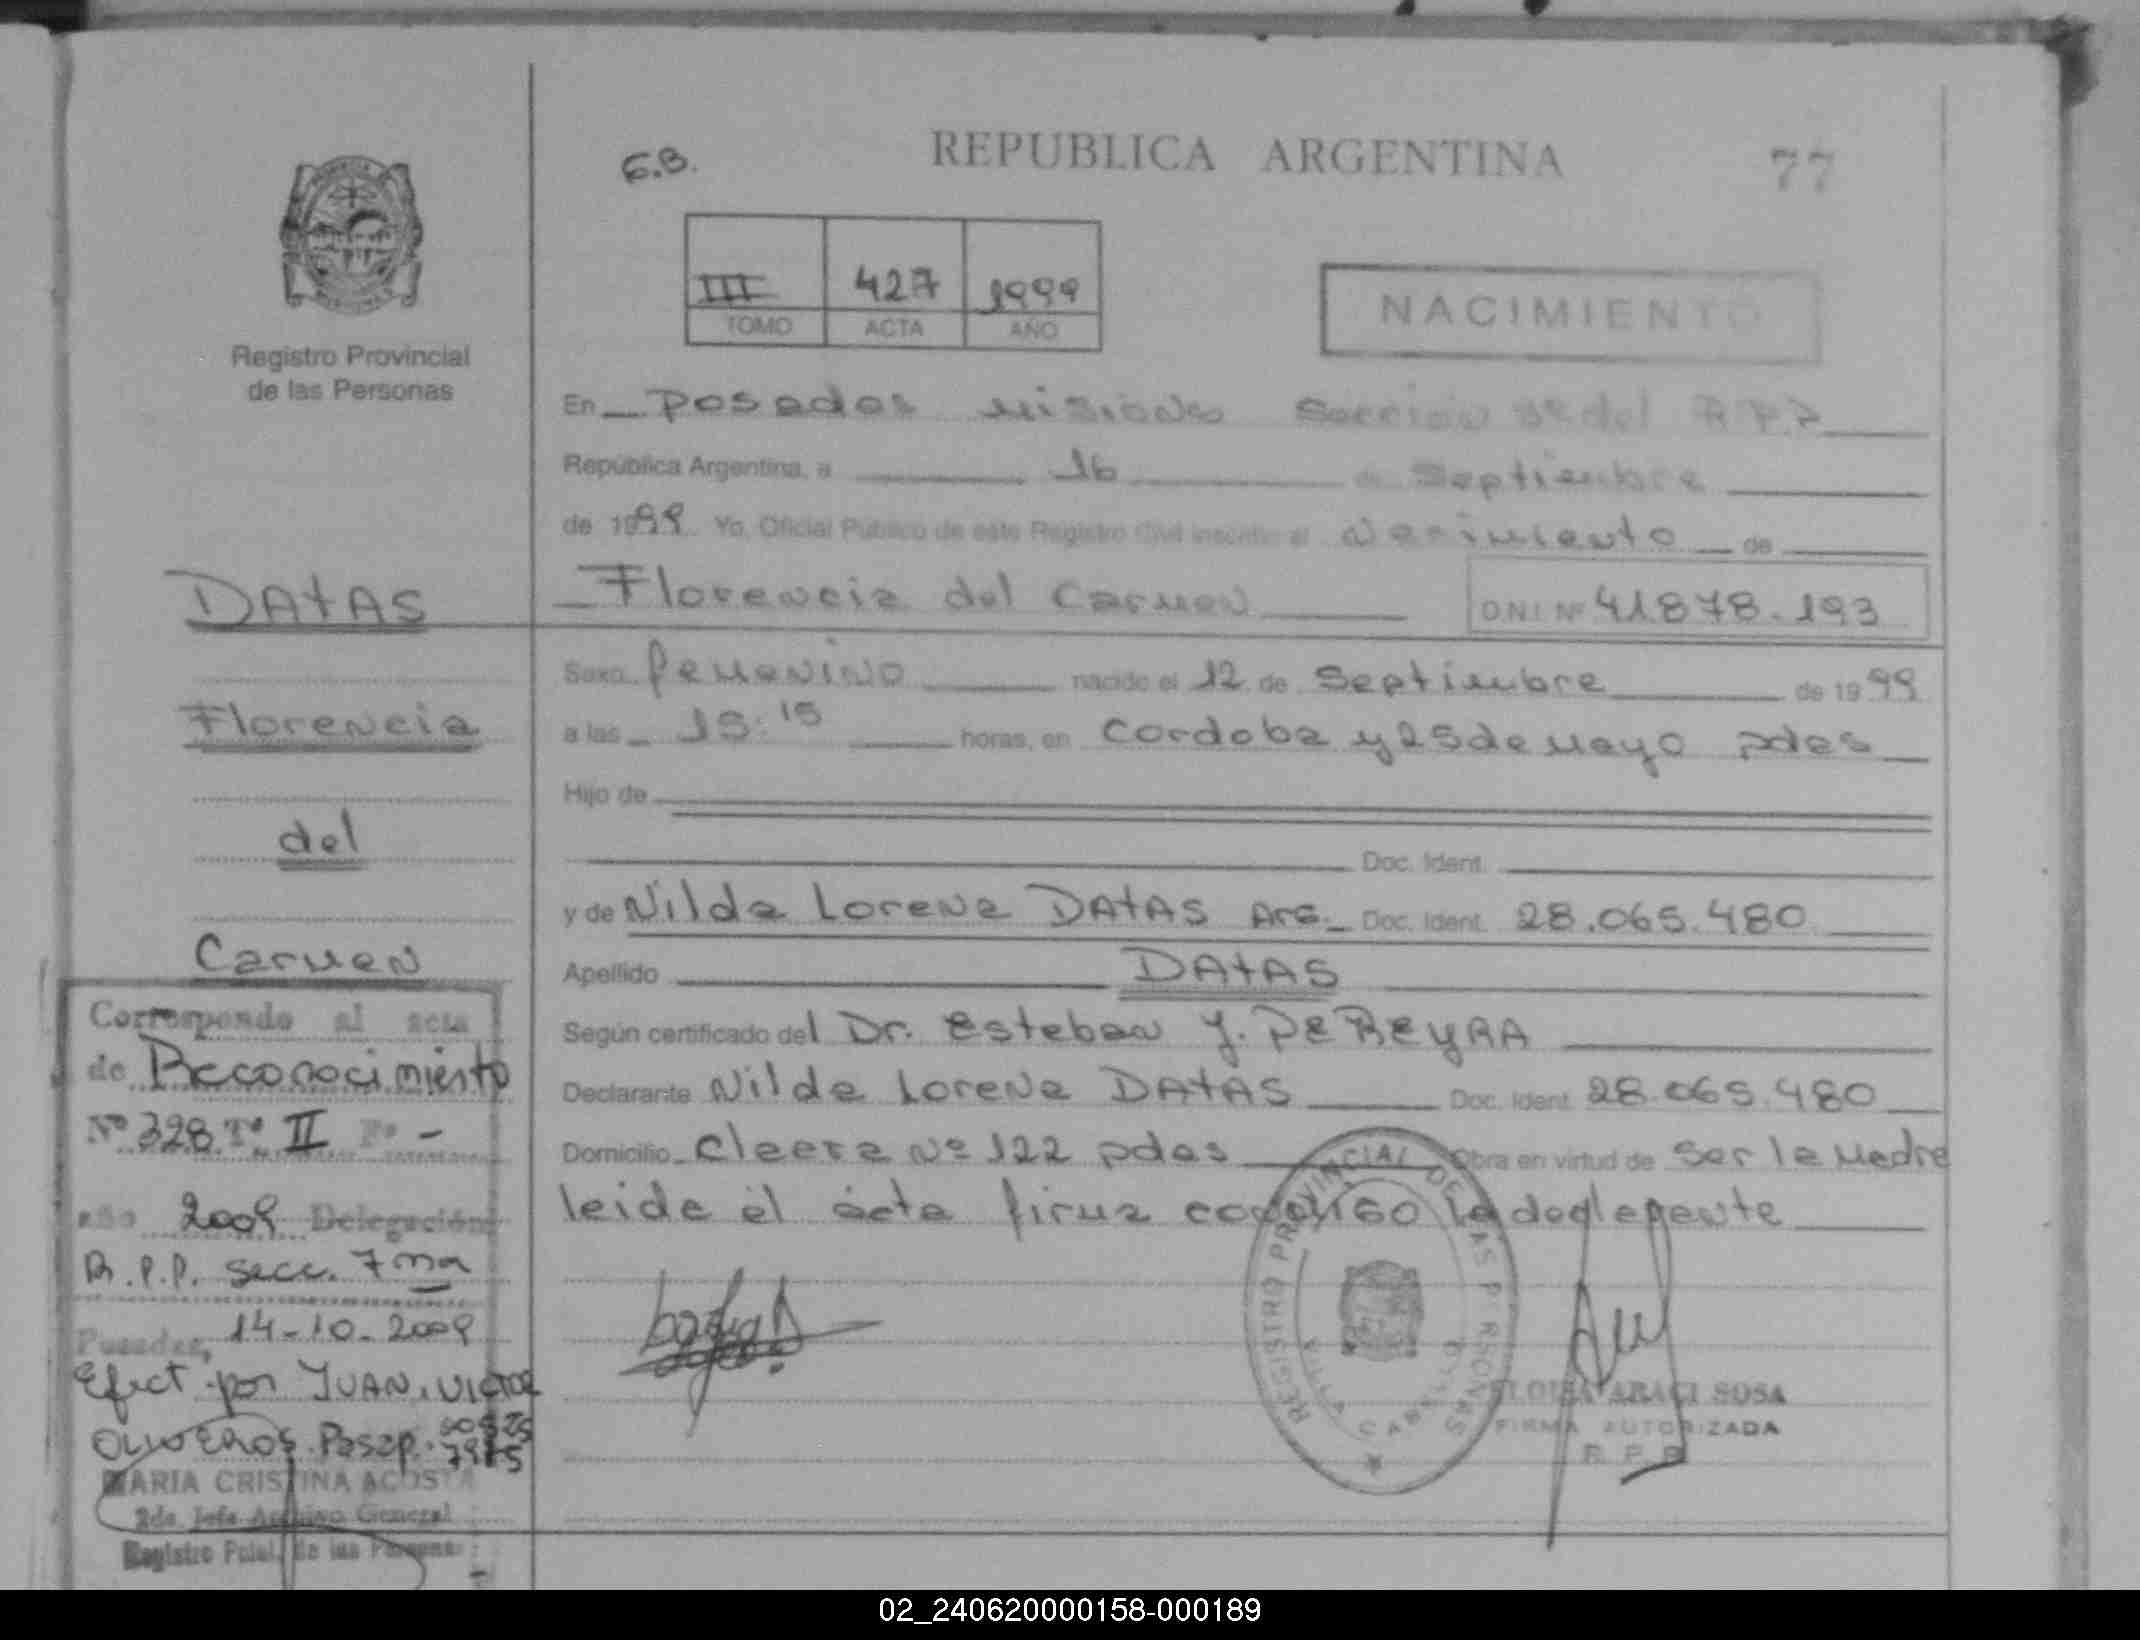 REPUBLICA ARGENTINA
77
III 427 1999
TOMO ACTA AÑO
NACIMIENTO
Registro Provincial
de las Personas
En Posadas Misiones Sección del R.P.P
República Argentina, a 16 de Septiembre
de 1999 Yo, Oficial Público de este Registro Civil inscribo el Nacimiento de
Florencia del Carmen D.N.I. Nº 41.878.193
Sexo Femenino nacido el 12 de Septiembre de 1999
a las 15:15 horas, en Cordoba y 25 de Mayo pdas
Hijo de
Doc. Ident.
y de Nilda Lorena DATAS ARG. Doc. Ident. 28.065.480
Apellido DATAS
Según certificado del Dr. Esteban J. PEREYRA
Declarante Nilda Lorena DATAS Doc. Ident. 28.065.480
Domicilio Nº 122 pdas Obra en virtud de Ser la Madre
leida el acta firma conmigo la
REGISTRO PROVINCIAL DE LAS PERSONAS
VILLA CABELLO
ELOISA ARACI SOSA
FIRMA AUTORIZADA
R.P.P
DATAS
Florencia
del
Carmen
Corresponde al acta
de Reconocimiento
Nº 328 Tº II Fº -
año 2009 Delegación
R.P.P. secc. 7ma
Posadas, 14-10-2009
Efect por JUAN VICTOR
OLIVEROS Pasap.
MARIA CRISTINA ACOSTA
2da. Jefe Archivo General
Registro Pcial. de las Personas
02_240620000158-000189